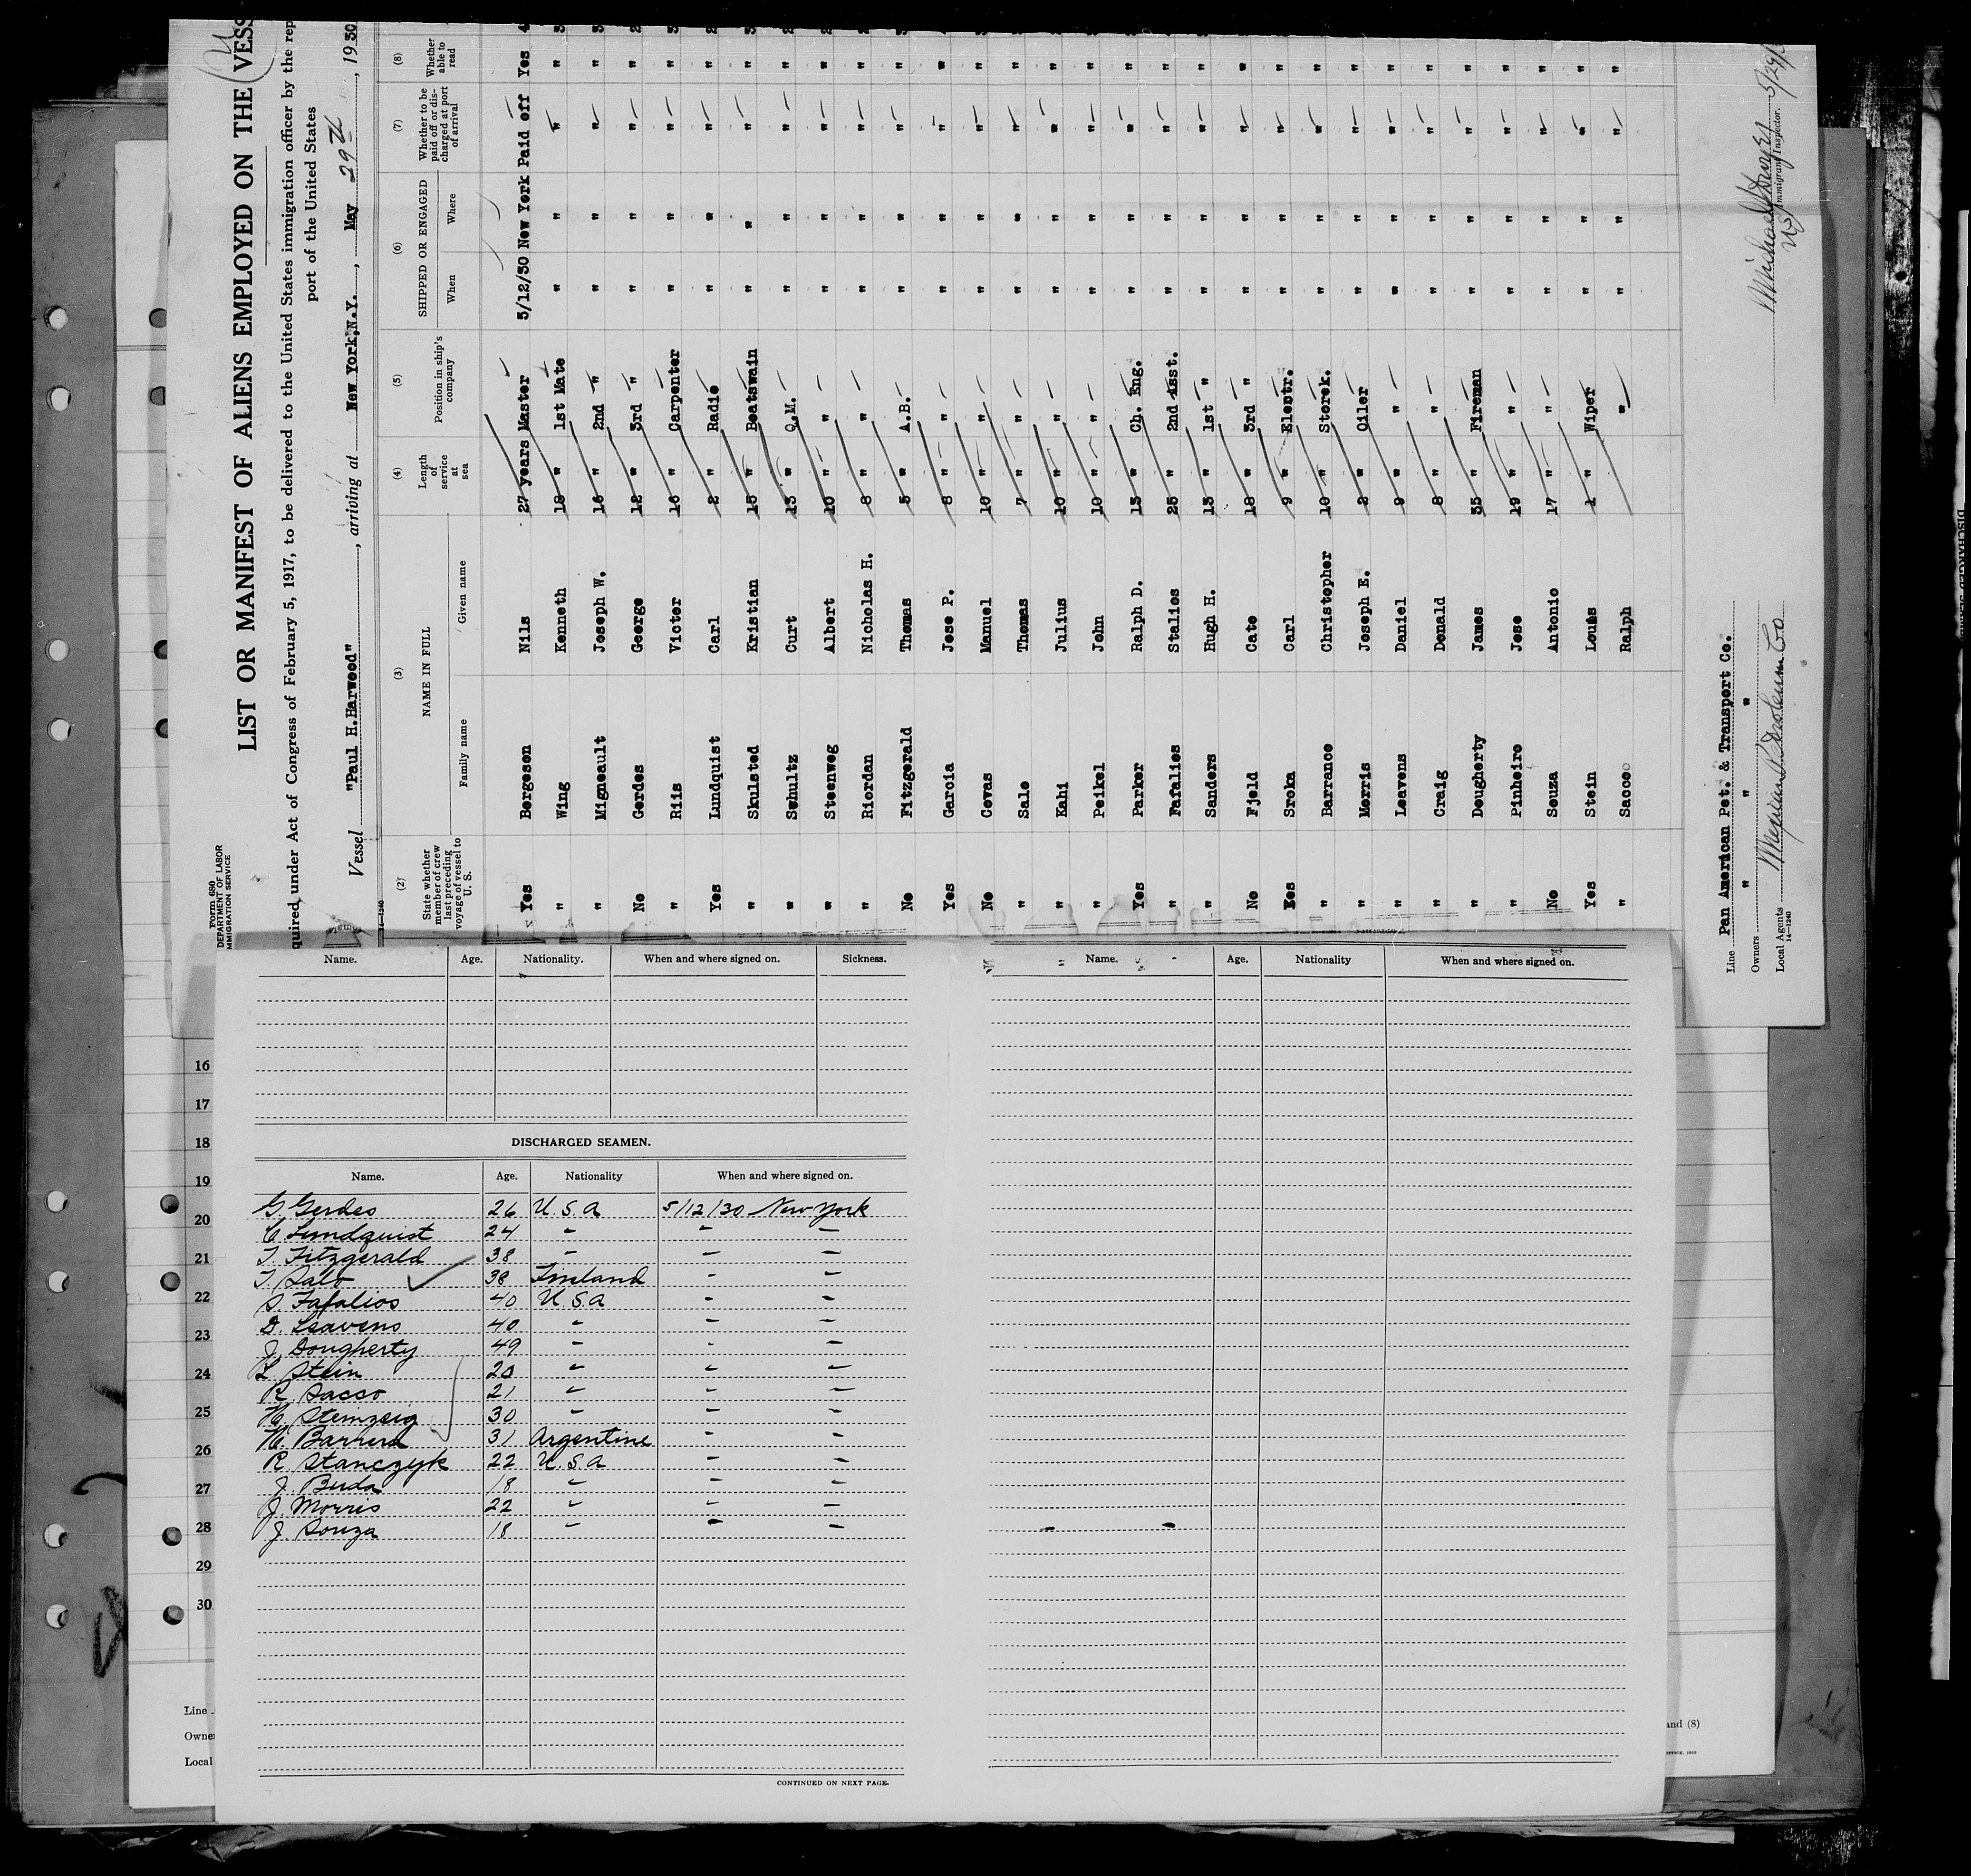 Form 680
DEPARTMENT OF LABOR
MMIGRATION SERVICE
LIST OR MANIFEST OF ALIENS EMPLOYED ON THE VESS
quired under Act of Congress of February 5, 1917, to be delivered to the United States immigration officer by the rep
port of the United States
Vessel "Paul H.Harwood", arriving at New York,N.Y., May 29th, 1930
(2) (3) (4) (5) (6) (7) (8)
State whether member of crew last preceding voyage of vessel to U. S. NAME IN FULL Length of service at sea Position in ship's company SHIPPED OR ENGAGED Whether to be paid off or discharged at port of arrival Whether able to read
Family name Given name When Where
Yes Bergeson Nils 27 years Master 5/12/30 New York Paid off Yes 4
" Wing Kenneth 18 " 1st Mate " " " " 3
" Migneault Joseph W. 16 " 2nd " " " " " 3
No Gerdes George 12 " 3rd " " " " " 2
" Riis Victor 16 " Carpenter " " " " 3
Yes Lundquist Carl 2 " Radio " " " " 2
" Skulsted Kristian 15 " Boatswain " " " " 3
" Schultz Curt 13 " Q.M. " " " " 2
" Steenweg Albert 10 " " " " " " 2
" Riordan Nicholas H. 8 " " " " " " 2
No Fitzgerald Thomas 5 " A.B. " " " " 3
Yes Garcia Jose P. 8 " " " " " "
No Covas Manuel 10 " " " " " "
" Salo Thomas 7 " " " " " "
" Kahi Julius 10 " " " " " "
" Peikel John 10 " " " " " "
Yes Parker Ralph D. 13 " Ch. Eng. " " " "
" Fafalios Stalios 25 " 2nd Asst. " " " "
" Sanders Hugh H. 13 " 1st " " " " "
No Fjeld Cato 18 " 3rd " " " " "
Yes Sroka Carl 9 " Electr. " " " "
" Barranco Christopher 10 " Storek. " " " "
" Morris Joseph E. 2 " Oiler " " " "
" Leavens Daniel 9 " " " " " "
" Craig Donald 8 " " " " " "
" Dougherty James 35 " Fireman " " " "
" Pinheiro Jose 19 " " " " " "
No Souza Antonio 17 " " " " " "
Yes Stein Louis 1 " Wiper " " " "
" Sacco Ralph " " " " "
Line Pan American Pet. & Transport Co.
Owners " " "
Local Agents Mexican Petroleum Co
14—1240
Immigrant Inspector.
Name. Age. Nationality. When and where signed on. Sickness.
Name. Age. Nationality When and where signed on.
DISCHARGED SEAMEN.
Name. Age. Nationality When and where signed on.
G. Gerdes 26 U.S.A 5/12/30 New York
C Lundquist 24 " " "
T. Fitzgerald 38 " " "
T. Salo 38 Finland " "
S. Fafalios 40 U.S.A " "
D. Leavens 40 " " "
J. Dougherty 49 " " "
L Stein 20 " " "
R. Sacco 21 " " "
30 " " "
Barrera 31 Argentine " "
R Stanczyk 22 U.S.A " "
J. Buda 18 " " "
J. Morris 22 " " "
J. Souza 18 " " "
CONTINUED ON NEXT PAGE.
16
17
18
19
20
21
22
23
24
25
26
27
28
29
30
Line
Owne
Local
and (8)